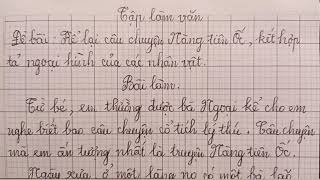 Tập làm văn
Đề bài: Kể lại câu chuyện Nàng tiên Ốc, kết hợp
tả ngoại hình của các nhân vật.
Bài làm.
Từ bé, em thường được bà Ngoại kể cho em
nghe biết bao câu chuyện cổ tích lý thú. Câu chuyện
mà em ấn tượng nhất là truyện Nàng tiên Ốc.
Ngày xưa, ở một làng nọ có một bà lão